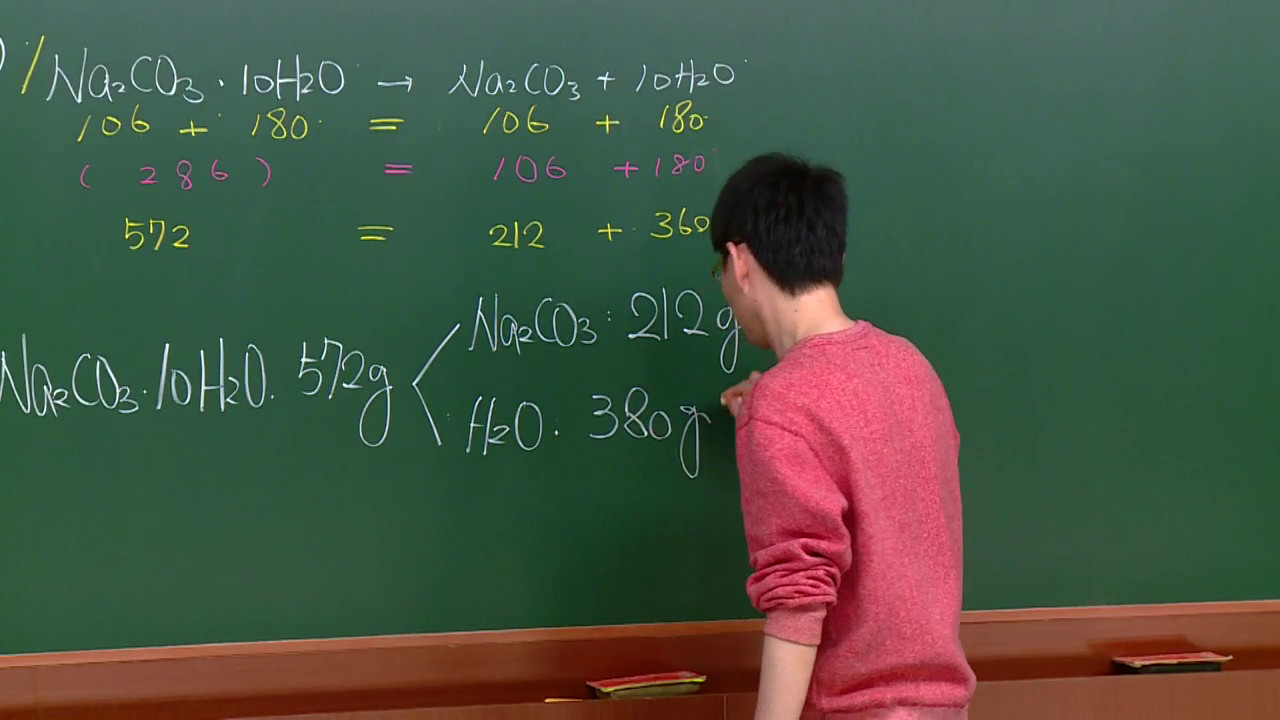 ) / Na₂CO₃ · 10H₂O → Na₂CO₃ + 10H₂O
106 + 180 = 106 + 180
( 286 ) = 106 + 180
572 = 212 + 360
Na₂CO₃ : 212g
Na₂CO₃·10H₂O. 572g <
H₂O. 380g